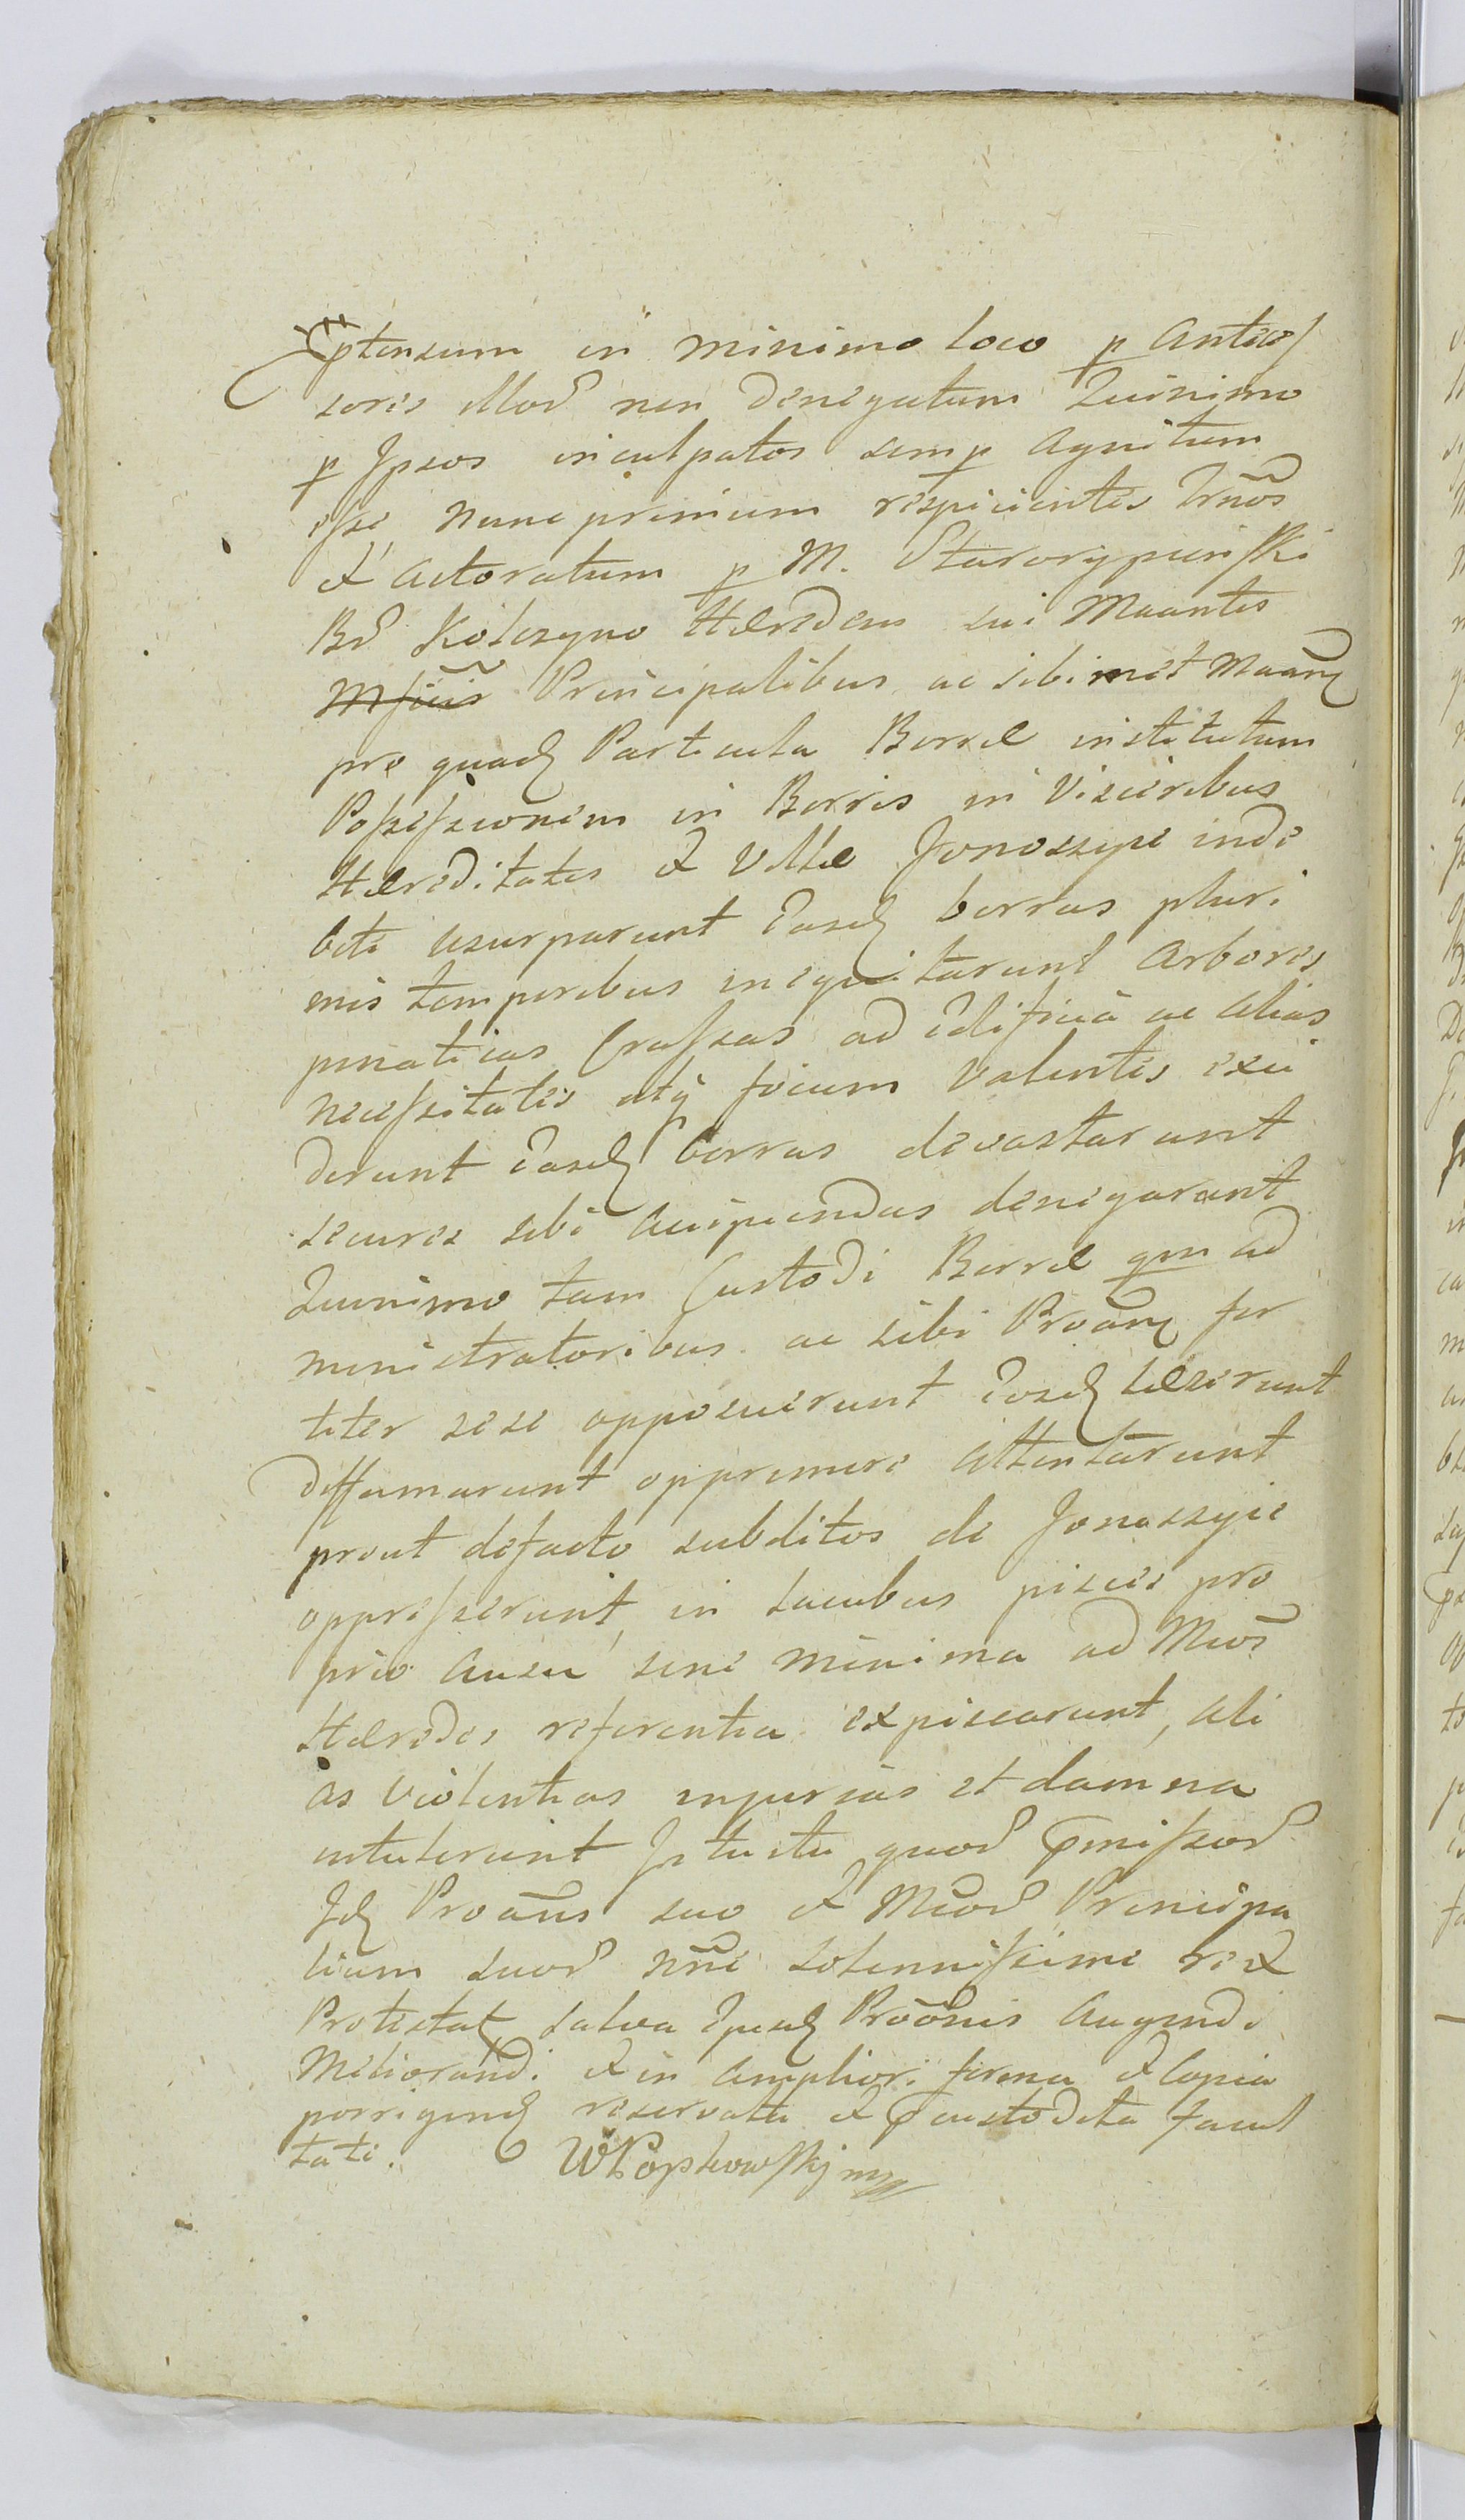 ptensum in minimo loco p Anteceſ
soris illoꝝ non denegatum Quinimo
p Ipsos inculpatos semp Agnitum
eſse, nunc primum respicientes Trnos̃
et Actoratum p M. Staroryſpinſki
Bꝝ Kolczyno Hæredem sui Maantes
Principalibus ac sibimet Maanꝗ
pro quadꝫ Particula Borræ institutum
Poſseſsionem in Borris in Visceribus
Hæreditatis et Villæ Jonoszyce inde
bite usurparunt Easdꝫ borras pluri
mis temporibus inequitarunt Arbores
pinaticas Craſsas ad Edificia ac Alias
neceſsitates atqꝫ focum Valentes exci
derunt Easdꝫ borras devastarunt
secures sibi Accipiendas denegarunt
Quinimo tam Custodi Borræ qm ad
ministratoribus ac sibi Proanꝗ for
titer sese opposuerunt Eosdꝫ læserunt
diffamarunt opprimere Attentarunt
prout defacto subditos de Jonoszyce
oppreſserunt, in Lacubus pisces pro
prio Ausu sine minima ad Mcos̃
Hæredes referentia expiscarunt, Ali
as violentias injurias et damna
intulerunt Is̃ta ita quoꝝ p̃miſsoꝝ
Idꝫ Proãns suo et Mcoꝝ Principa
lium suoꝝ nñe solenniſsime re et
Protestatꝫ salva Ejusdꝫ Proõnis Augendi
Meliorandi et in Ampliori forma et Copia
porrigendꝫ reservata et p̃custodita facul
tate. WPopkowſkj mp